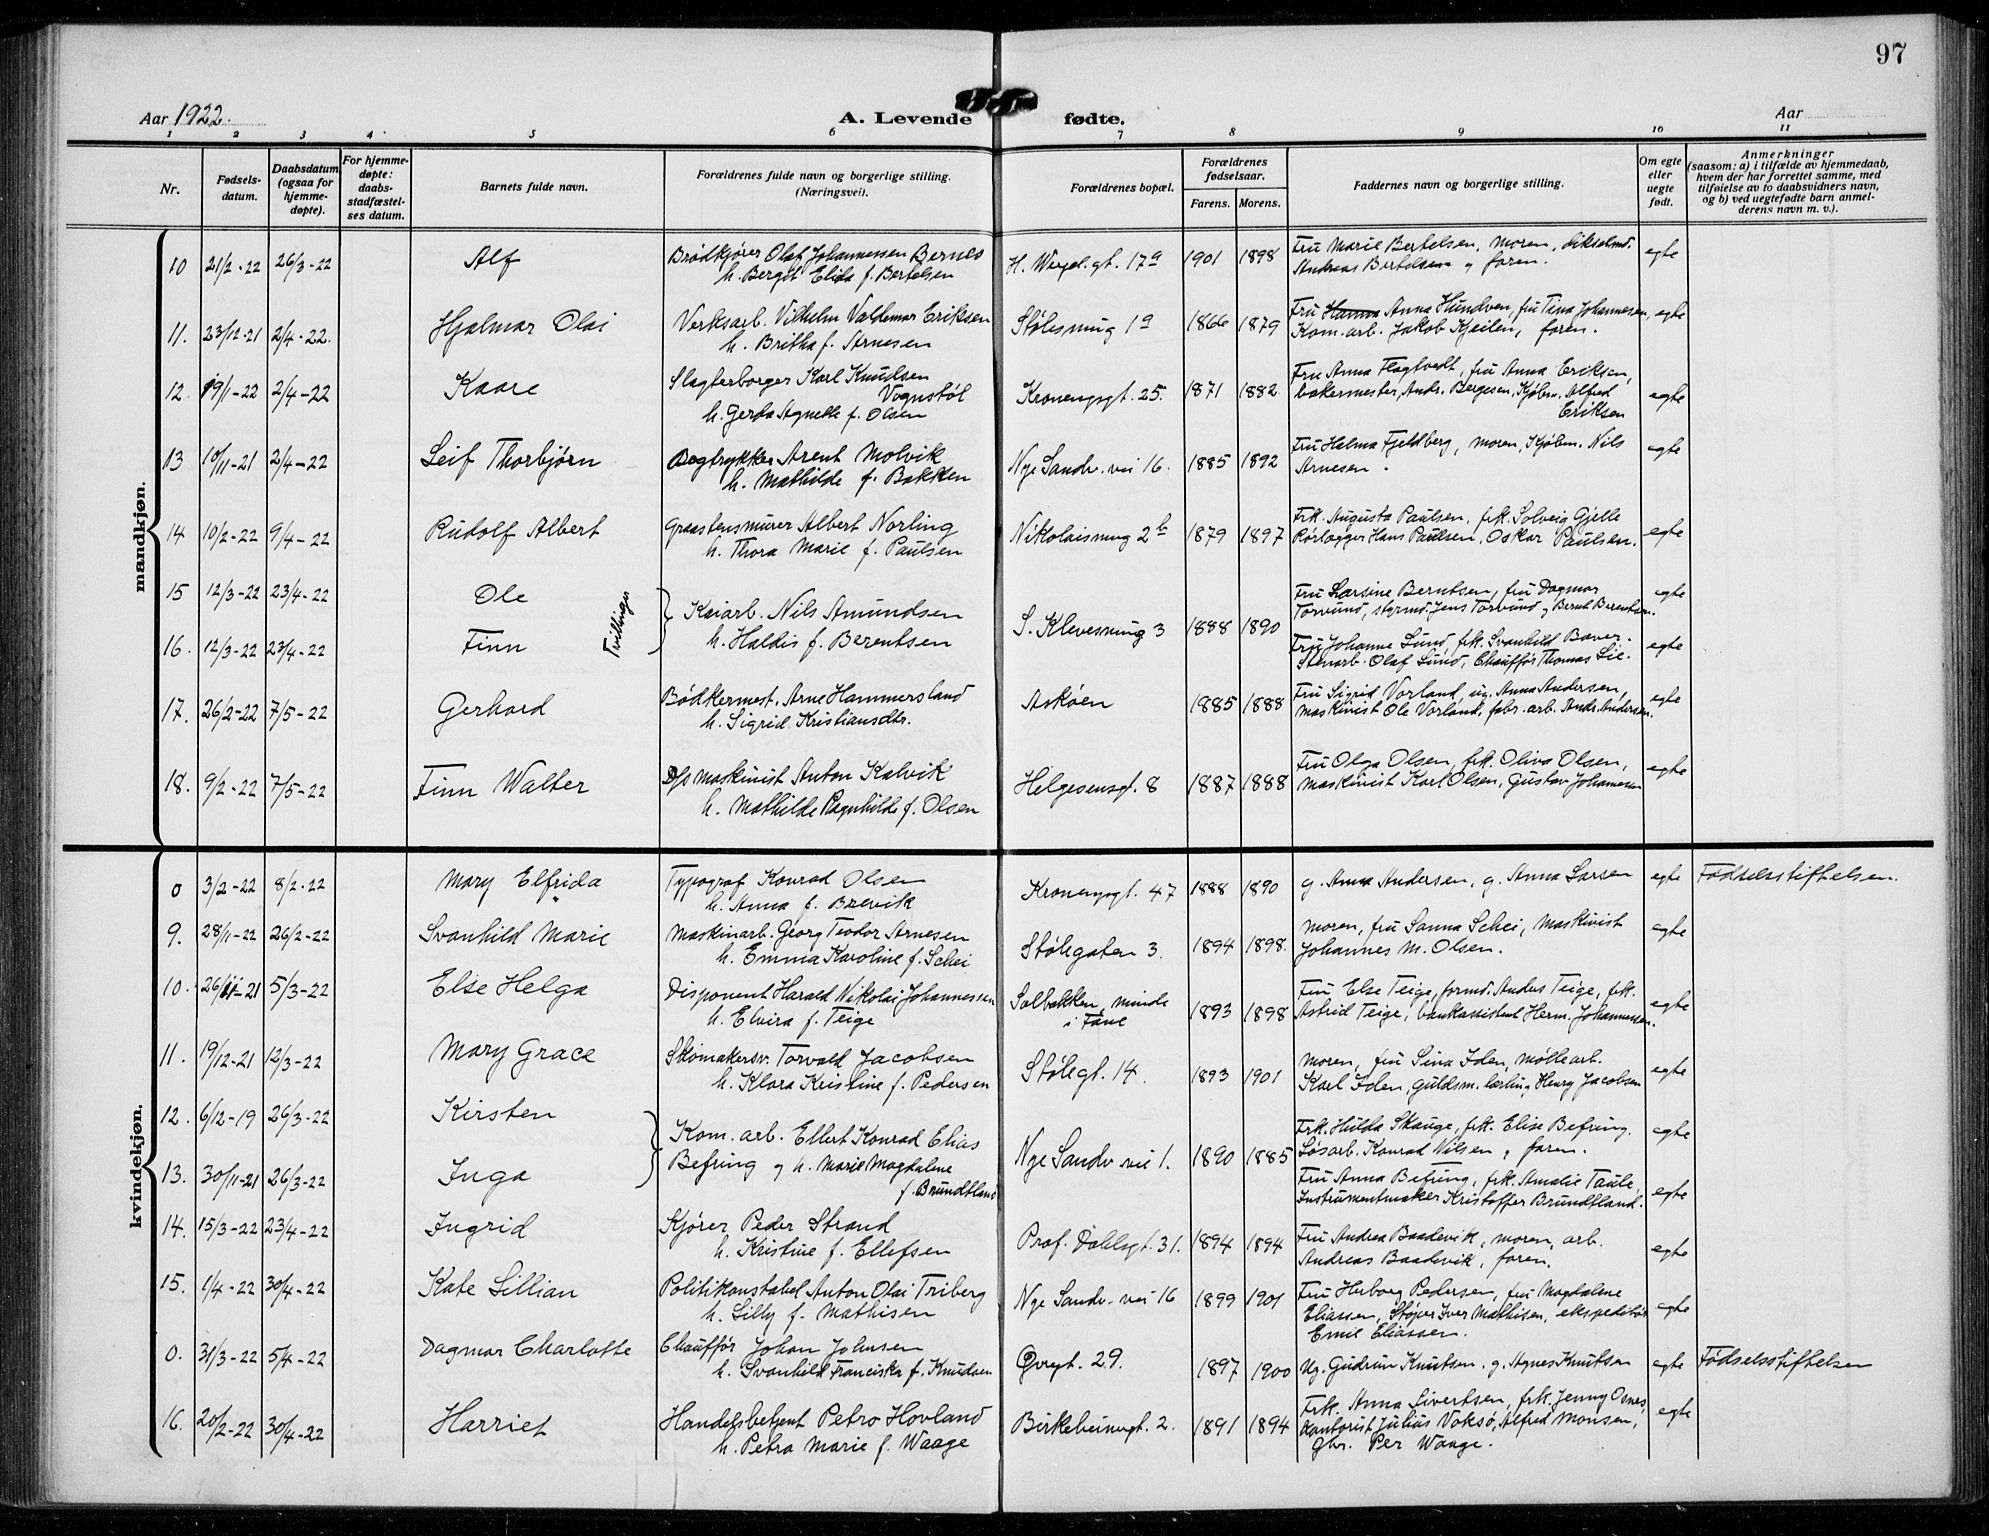 97
Aar 1922.
A. Levende fødte.
Aar
1 2 3 4 5 6 7 8 9 10 11
Nr.
Fødsels-
datum.
Daabsdatum
(ogsaa for
hjemme-
døpte).
For hjemme-
døpte:
daabs-
stadfæstel-
ses datum.
Barnets fulde navn.
Forældrenes fulde navn og borgerlige stilling.
(Næringsvei).
Forældrenes bopæl.
Forældrenes
fødselsaar.
Farens. Morens.
Faddernes navn og borgerlige stilling.
Om egte
eller
uegte
født.
Anmerkninger
(saasom: a) i tilfælde av hjemmedaab,
hvem der har forrettet samme, med
tilføielse av to daabsvidners navn,
og b) ved uegtefødte barn anmel-
derens navn m. v.).
mandkjøn.
10 21/2-22 26/3-22 Alf Brødkjører Olaf Johannessen Bernes H. Wergel. gt. 17a 1901 1898 Fru Marie Bertelsen, moren, egte
h. Bergit Elida f. Bertelsen Andreas Bertelsen og faren.
11. 23/12-21 2/4-22. Hjalmar Olai Verksarb. Vilhelm Valdemar Eriksen Stølesmug 1a 1866 1879 Fru Hanna Anna Hundven, fru Tina Johannesen, egte
h. Britha f. Arnesen Kom. arb. Jakob Kjeilen, faren.
12. 19/1-22 2/4-22 Kaare Slagterborger Karl Knudsen Kronengsgt. 25. 1871 1882 Fru Anna Flagtvedt, fru Anna Eriksen, egte
Vognstøl bakermester Andr. Bergesen, Kjøbm. Alfred
h. Gerda Agnethe f. Olsen Eriksen
13 10/11-21 2/4-22 Leif Thorbjørn Bogtrykker Arent Molvik Nye Sandv. vei 16. 1885 1892 Fru Halma Fjeldberg, moren, Kjøbm. Nils egte
h. Mathilde f. Bakken Arnesen.
14 10/2-22 9/4-22 Rudolf Albert Graastensmurer Albert Norling Nikolaismug 2b 1879 1897 Frk. Augusta Paulsen, frk. Solveig Gjelle egte
h. Thora Marie f. Paulsen Rørlægger Hans Paulsen, Oskar Paulsen.
15 12/3-22 23/4-22 Ole Tvillinger Kaiarb. Nils Amundsen S. Klevesmug 3 1888 1890 Fru Larsine Berntsen, fru Dagmar egte
Torvund, styrmd. Jens Torvund og Bernt Berentsen.
16. 12/3-22 23/4-22 Finn h. Haldis f. Berentsen Fru Johanne Lund, frk. Svanhild Baver. egte
Stenarb. Olaf Lund, Chauffør Thomas Lie.
17. 26/2-22 7/5-22 Gerhard Bødkermest. Arne Hammersland Askøen 1885 1888 Fru Sigrid Vorland, ug. Anna Andersen, egte
h. Sigrid Kristiansdtr. maskinist Ole Vorland, fabr. arb. Andr. Andersen.
18. 9/2-22 7/5-22 Finn Walter D/s maskinist Anton Kalvik Helgesensgt. 8 1887 1888 Fru Olga Olsen, frk. Oliva Olsen, egte
h. Mathilde Ragnhilde f. Olsen maskinist Karl Olsen, Gustav Johannesen
kvindekjøn.
0 3/2-22 8/2-22 Mary Elfrida Typograf Konrad Olsen Kronengsgt. 47 1888 1890 g. Anna Andersen, g. Anna Larsen egte Fødselsstiftelsen.
h. Anna f. Brevik
9. 28/11-22 26/2-22 Svanhild Marie Maskinarb. Georg Teodor Arnesen Stølegaten 3. 1894 1898. moren, fru Sanna Schei, maskinist egte
h. Emma Karoline f. Schei Johannes M. Olsen.
10. 26/11-21 5/3-22 Else Helga Disponent Harald Nikolai Johannessen Solbakken, minde 1893 1898 Fru Else Teige, formd. Anders Teige, frk. egte
h. Elvira f. Teige i Fane Astrid Teige, bankassistent Herm. Johannessen.
11. 19/12-21 12/3-22 Mary Grace Skomakersv. Torvald Jacobsen Stølegt. 14. 1893 1901 moren, fru Sina Iden, møllearb. egte
h. Klara Kristine f. Pedersen Karl Iden, guldsm. lærling Henry Jacobsen
12. 6/12-19 26/3-22 Kirsten Kom. arb. Ellert Konrad Elias Nye Sandv. vei 1. 1890 1885 Frk. Hulda Skauge, frk. Elise Befring. egte
Løsarb. Konrad Nilsen, faren.
13. 30/11-21 26/3-22 Inga Befring og h. Marie Magdalene Fru Anna Befring, frk. Amalie Taule, egte
f. Brundtland Instrumentmaker Kristoffer Brundtland.
14. 15/3-22 23/4-22 Ingrid Kjører Peder Strand Prof. Dahlsgt. 31. 1894 1894 Fru Andrea Baadevik, moren, arb. egte
h. Kristine f. Ellefsen Andreas Baadevik, faren.
15. 1/4-22 30/4-22 Kate Lillian Politikonstabel Anton Olai Triberg Nye Sandv. vei 16 1899 1901 Fru Herborg Pedersen, fru Magdalene egte
h. Lilly f. Mathisen Eliassen, Støper Iver Mathisen, ekspeditør
Emil Eliassen.
0. 31/3-22 5/4-22 Dagmar Charlotte Chauffør Johan Johnsen Øvregt. 29. 1897 1900 Ug. Gudrun Knutsen. g. Agnes Knutsen egte Fødselsstiftelsen
h. Svanhild Franciska f. Knudsen
16. 20/2-22 30/4-22 Harriet Handelsbetjent Petro Hovland Birkebeinergt. 2. 1891 1894 Frk. Anna Sivertsen, frk. Jenny Osnes, egte
h. Petra Marie f. Waage Kontorist Julius Voksø, Alfred Monsen,
gbr. Per Waage.